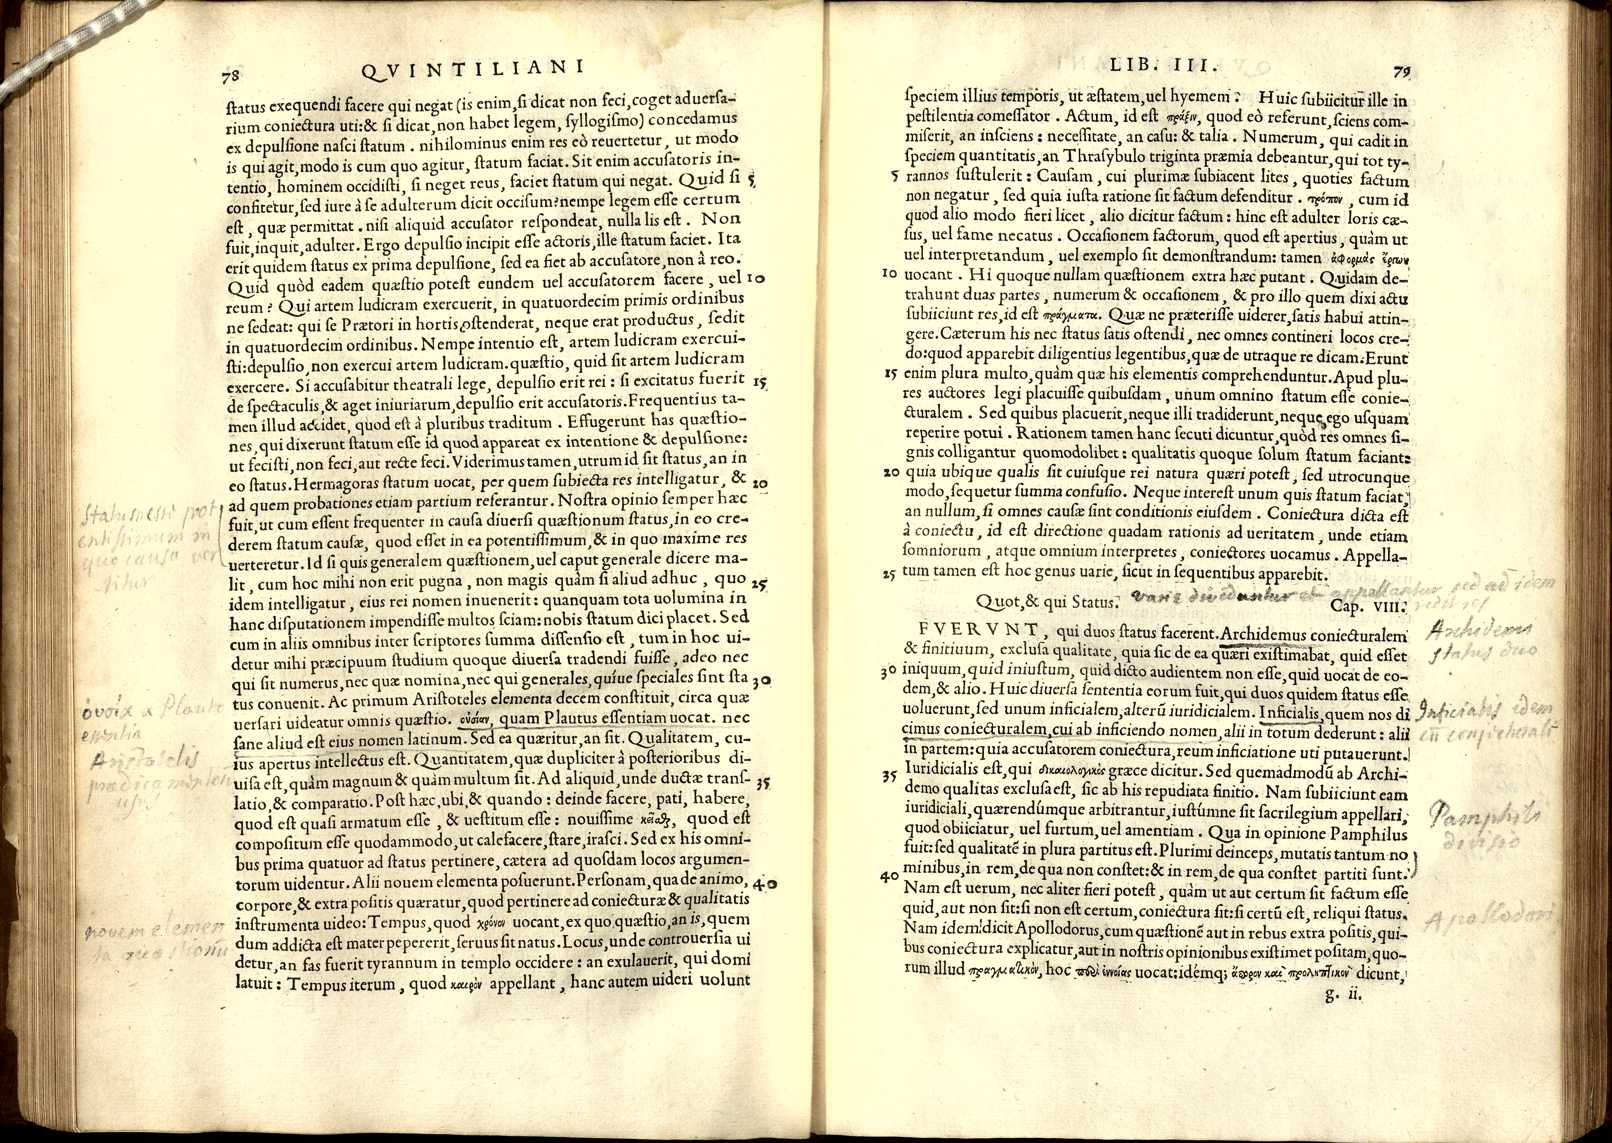 78 QVINTILIANI
status exequendi facere qui negat (is enim, si dicat non feci, coget aduersa-
rium coniectura uti: & si dicat, non habet legem, syllogismo) concedamus
ex depulsione nasci statum . nihilominus enim res eò reuertetur, ut modo
is qui agit, modo is cum quo agitur, statum faciat. Sit enim accusatoris in-
tentio, hominem occidisti, si neget reus, faciet statum qui negat. Quid si 5
confitetur, sed iure à se adulterum dicit occisum? nempe legem esse certum
est , quæ permittat . nisi aliquid accusator respondeat, nulla lis est . Non
fuit, inquit, adulter. Ergo depulsio incipit esse actoris, ille statum faciet. Ita
erit quidem status ex prima depulsione, sed ea fiet ab accusatore, non à reo.
Quid quòd eadem quæstio potest eundem uel accusatorem facere , uel 10
reum ? Qui artem ludicram exercuerit, in quatuordecim primis ordinibus
ne sedeat: qui se Prætori in hortis ostenderat, neque erat productus, sedit
in quatuordecim ordinibus. Nempe intentio est, artem ludicram exercui-
sti: depulsio, non exercui artem ludicram. quæstio, quid sit artem ludicram
exercere. Si accusabitur theatrali lege, depulsio erit rei : si excitatus fuerit 15
de spectaculis, & aget iniuriarum, depulsio erit accusatoris. Frequentius ta-
men illud accidet, quod est à pluribus traditum . Effugerunt has quæstio-
nes, qui dixerunt statum esse id quod appareat ex intentione & depulsione:
ut fecisti, non feci, aut recte feci. Viderimus tamen, utrum id sit status, an in
eo status. Hermagoras statum uocat, per quem subiecta res intelligatur, & 20
ad quem probationes etiam partium referantur. Nostra opinio semper hæc
fuit, ut cum essent frequenter in causa diuersi quæstionum status, in eo cre-
derem statum causæ, quod esset in ea potentissimum, & in quo maxime res
uerteretur. Id si quis generalem quæstionem, uel caput generale dicere ma-
lit , cum hoc mihi non erit pugna , non magis quàm si aliud adhuc , quo 25
idem intelligatur, eius rei nomen inuenerit: quanquam tota uolumina in
hanc disputationem impendisse multos sciam: nobis statum dici placet. Sed
cum in aliis omnibus inter scriptores summa dissensio est , tum in hoc ui-
detur mihi præcipuum studium quoque diuersa tradendi fuisse, adeo nec
qui sit numerus, nec quæ nomina, nec qui generales, quíue speciales sint sta 30
tus conuenit. Ac primum Aristoteles elementa decem constituit, circa quæ
uersari uideatur omnis quæstio. οὐσίαν, quam Plautus essentiam uocat. nec
sane aliud est eius nomen latinum. Sed ea quæritur, an sit. Qualitatem, cu-
ius apertus intellectus est. Quantitatem, quæ dupliciter à posterioribus di-
uisa est, quàm magnum & quàm multum sit. Ad aliquid, unde ductæ trans- 35
latio, & comparatio. Post hæc, ubi, & quando : deinde facere, pati, habere,
quod est quasi armatum esse , & uestitum esse : nouissime κεῖσθαι, quod est
compositum esse quodammodo, ut calefacere, stare, irasci. Sed ex his omni-
bus prima quatuor ad status pertinere, cætera ad quosdam locos argumen-
torum uidentur. Alii nouem elementa posuerunt. Personam, qua de animo, 40
corpore, & extra positis quæratur, quod pertinere ad coniecturæ & qualitatis
instrumenta uideo: Tempus, quod χρόνον uocant, ex quo quæstio, an is, quem
dum addicta est mater pepererit, seruus sit natus. Locus, unde controuersia ui
detur, an fas fuerit tyrannum in templo occidere : an exulauerit, qui domi
latuit : Tempus iterum , quod καιρὸν appellant , hanc autem uideri uolunt
Status
quo causa ver
titur
οὐσία
essentia
Aristotelis
novem elemen
ta quæstionum
LIB. III. 79
speciem illius temporis, ut æstatem, uel hyemem ? Huic subiicitur ille in
pestilentia comessator . Actum, id est πράξιν, quod eò referunt, sciens com-
miserit, an insciens : necessitate, an casu: & talia . Numerum, qui cadit in
speciem quantitatis, an Thrasybulo triginta præmia debeantur, qui tot ty-
5 rannos sustulerit : Causam, cui plurimæ subiacent lites , quoties factum
non negatur , sed quia iusta ratione sit factum defenditur . τρόπον , cum id
quod alio modo fieri licet , alio dicitur factum : hinc est adulter loris cæ-
sus, uel fame necatus . Occasionem factorum, quod est apertius , quàm ut
uel interpretandum , uel exemplo sit demonstrandum: tamen ἀφορμὰς ἔργων
10 uocant . Hi quoque nullam quæstionem extra hæc putant . Quidam de-
trahunt duas partes , numerum & occasionem , & pro illo quem dixi actu
subiiciunt res, id est πράγματα. Quæ ne præterisse uiderer, satis habui attin-
gere. Cæterum his nec status satis ostendi , nec omnes contineri locos cre-
do: quod apparebit diligentius legentibus, quæ de utraque re dicam: Erunt
15 enim plura multo, quàm quæ his elementis comprehenduntur. Apud plu-
res auctores legi placuisse quibusdam , unum omnino statum esse conie-
cturalem . Sed quibus placuerit, neque illi tradiderunt, neque ego usquam
reperire potui . Rationem tamen hanc secuti dicuntur, quòd res omnes si-
gnis colligantur quomodolibet : qualitatis quoque solum statum faciant:
20 quia ubique qualis sit cuiusque rei natura quæri potest , sed utrocunque
modo, sequetur summa confusio . Neque interest unum quis statum faciat,
an nullum, si omnes causæ sint conditionis eiusdem . Coniectura dicta est
à coniectu , id est directione quadam rationis ad ueritatem , unde etiam
somniorum , atque omnium interpretes , coniectores uocamus . Appella-
25 tum tamen est hoc genus uarie, sicut in sequentibus apparebit.
Quot, & qui Status. Cap. VIII.
varie dividuntur et appellantur sed ad idem
FVERVNT, qui duos status facerent. Archidemus coniecturalem
& finitiuum, exclusa qualitate, quia sic de ea quæri existimabat, quid esset
30 iniquum, quid iniustum, quid dicto audientem non esse, quid uocat de eo-
dem, & alio. Huic diuersa sententia eorum fuit, qui duos quidem status esse
uoluerunt, sed unum inficialem, alterũ iuridicialem. Inficialis, quem nos di
cimus coniecturalem, cui ab inficiendo nomen, alii in totum dederunt : alii
in partem: quia accusatorem coniectura, reum inficiatione uti putauerunt.
35 Iuridicialis est, qui δικαιολογικὸς græce dicitur. Sed quemadmodũ ab Archi-
demo qualitas exclusa est, sic ab his repudiata finitio. Nam subiiciunt eam
iuridiciali, quærendúmque arbitrantur, iustúmne sit sacrilegium appellari,
quod obiiciatur, uel furtum, uel amentiam . Qua in opinione Pamphilus
fuit: sed qualitatẽ in plura partitus est. Plurimi deinceps, mutatis tantum no
40 minibus, in rem, de qua non constet: & in rem, de qua constet partiti sunt.
Nam est uerum, nec aliter fieri potest , quàm ut aut certum sit factum esse
quid, aut non sit: si non est certum, coniectura sit: si certũ est, reliqui status.
Nam idem dicit Apollodorus, cum quæstionẽ aut in rebus extra positis, qui-
bus coniectura explicatur, aut in nostris opinionibus existimet positam, quo-
rum illud πραγματικὸν, hoc περὶ ἐννοίας uocat: idemq; ἄπορον καὶ προληπτικὸν dicunt,
g. ii.
Archidemus
status duo
Inficialis idem
Pamphili
divisio
Apollodori